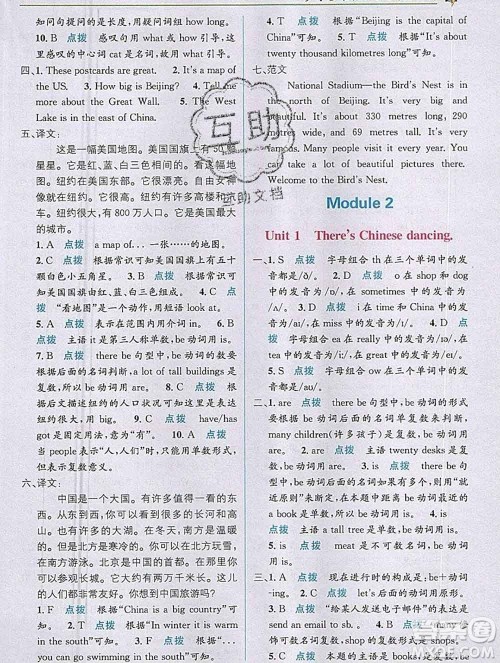 如何提问的是长度,用疑问词组 how long.
10. B 点拨 可用 what 或 how 引导感叹句,
这里感叹的中心词 cap 是名词,故用 what 引导。
四、1. These postcards are great. 2. It's a map of
the US. 3. How big is Beijing? 4. Tell
me more about the Great Wall. 5. The West
Lake is in China.
五、译文:
这是一幅美国地图。美国国旗上有 50
星星。它是红、蓝、白三色相间的。看这幅地
图。纽约在美国东部。它很漂亮。自由女神像
在纽约。它非常高大。纽约有许多高楼大
纽约很大,有 800 万人口。
1. A 点拨 a map of...一张……的地图。
2. C 点拨 根据常识可知美国国旗上有 50
个小五角星。 3. B 点拨 根据常识可知美
国国旗是红、蓝、白三色相间的。 4. B 点拨
“看地图”是一个动作,用短语 look at.
5. A 点拨 表示在范围内用介词 in...
6. B 点拨 主语 it 是第三人称单数,be 动
词用 is. 7. B 点拨 there be 句型中,be 动词的数要
根据后面的名词判断,a lot of tall buildings 是复
数,be 动词用 are. 8. C 点拨 根据常识可知
纽约是大城市。此处作者想要表达的意思是这座
纽约很大,用 big. 9. C 点拨 have/has
got 是固定用法,意为“有”。 10. A 点拨
people 表示“人,人们”时,只能用单数形式,
但表示复数意义。
六、译文:
中国是一个大国。有许多值得一看的东
西。到处都能看到很多的长河和高山,
许多的大湖。在冬天,南方是温暖
的,但是北方是寒冷的。我们在北方玩雪,
在南方游泳。北京是中国的首都。所有中国人
都喜欢它。它大约有两万千米长。
你们想来中国旅游吗?
1. C 点拨 根据“China is a big country”可
知。 2. T 点拨 根据“In winter, it is warm
in the south”可知。 3. F 点拨 根据
you go swimming in the south”可知。
4. T 点拨 根据“Beijing is the capital of
China”可知。 5. T 点拨 根据“It's about
twenty thousand kilometres long”可知。
七、范文
National Stadium—the Bird's Nest is in
the north of Beijing. It's very big and
beautiful. It's about 330 metres long, about
290 metres wide, and 69 metres tall. It's very
famous. Many people visit it every year. You
can take a lot of beautiful pictures there.
Welcome to the Bird's Nest.
Module 2
Unit 1 There's Chinese dancing.
一、1. S 点拨 字母组合 th 在三个单词中的发
音都是/ð/. 2. D 点拨 o 在 shop 和 dog
中的发音为/ɒ/,在 sometimes 中的发音为
/ʌ/. 3. D 点拨 i 在 time 和 China 中的
发音为/aɪ/,在 miss 中的发音为/ɪ/.
4. D 点拨 字母组合 ea 在 really 中的发音为/ɪə/,
在 tea 中的发音为/iː/. 5. S 点拨 字母组合 ow
在三个单词中的发音都是/aʊ/.
二、1. are 点拨 there be 句型中,be 动词的形式
要根据后面的名词单复数来判断。
many children(许多孩子)是复数,be 动词用 are.
2. is 点拨 there be 句型中,be 动词的形式
要根据 be 动词后面的名词单复数来判断。
如果后面的名词有单数也有复数,则用“就
近原则”。在本题中距离 be 动词最近的是 a
desk,是单数,be 动词用 is. 3. are
点拨 主语 twenty desks 是复数,be 动词用
are. 4. is 点拨 主语 a tall tree 是单数,be 动词用 is.
5. is 点拨 meat 是不可数名词,be 动词用
is.
三、1. B 点拨 现在进行时的构成是:be+doing.
2. A 点拨 “给某人发送电子邮件”的表达方
式是 send sb. an email. 3. C 点拨 many
修饰可数名词复数,shop 的复数形式是 shops.
互助
互助文档